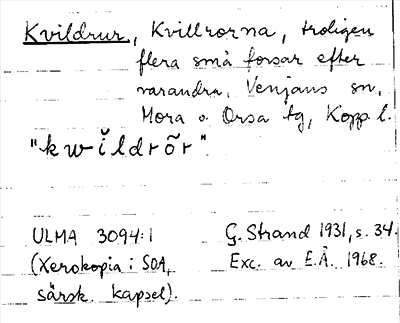 Kvildrur, Kvillrorna, troligen
flera små forsar efter
varandra. Venjans sn,
Mora o. Orsa tg, Kopp. l.
"kwĭldrõr".
ULMA 3094:1 G. Strand 1931, s. 34.
(Xerokopia i SOA, Exc. av E.Å. 1968.
särsk. kapsel).